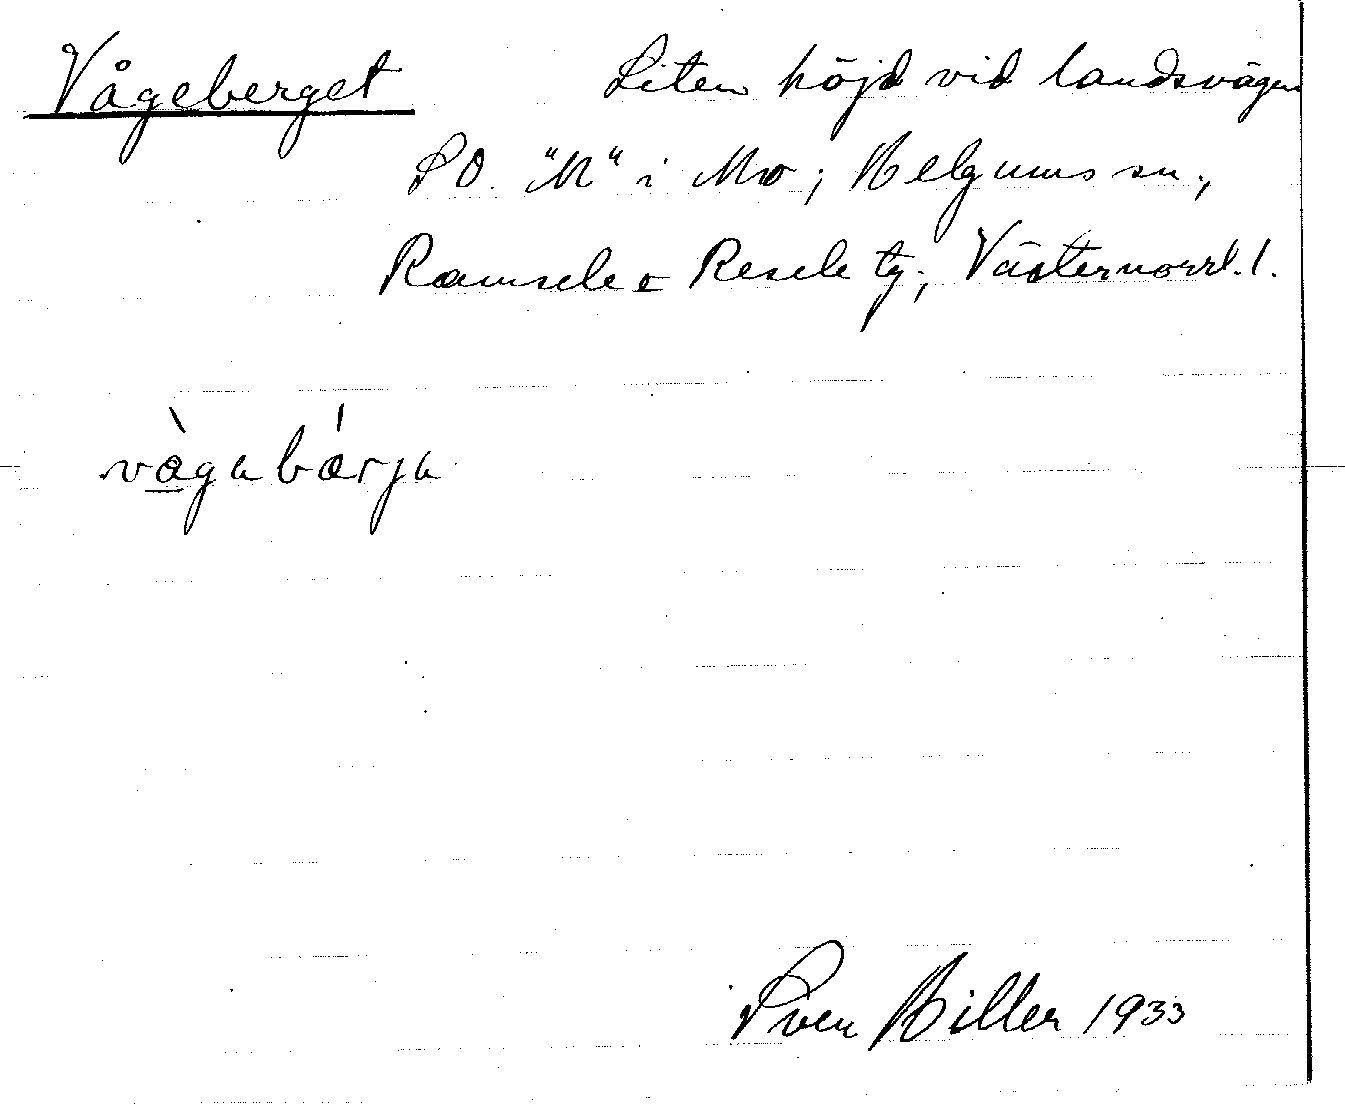 Vågeberget Liten höjd vid landsvägen
SO. "M" i Mo; Helgums sn.,
Ramsele o Resele tg.; Västernorrl. l.
vàgabárja
Sven Hiller 1933